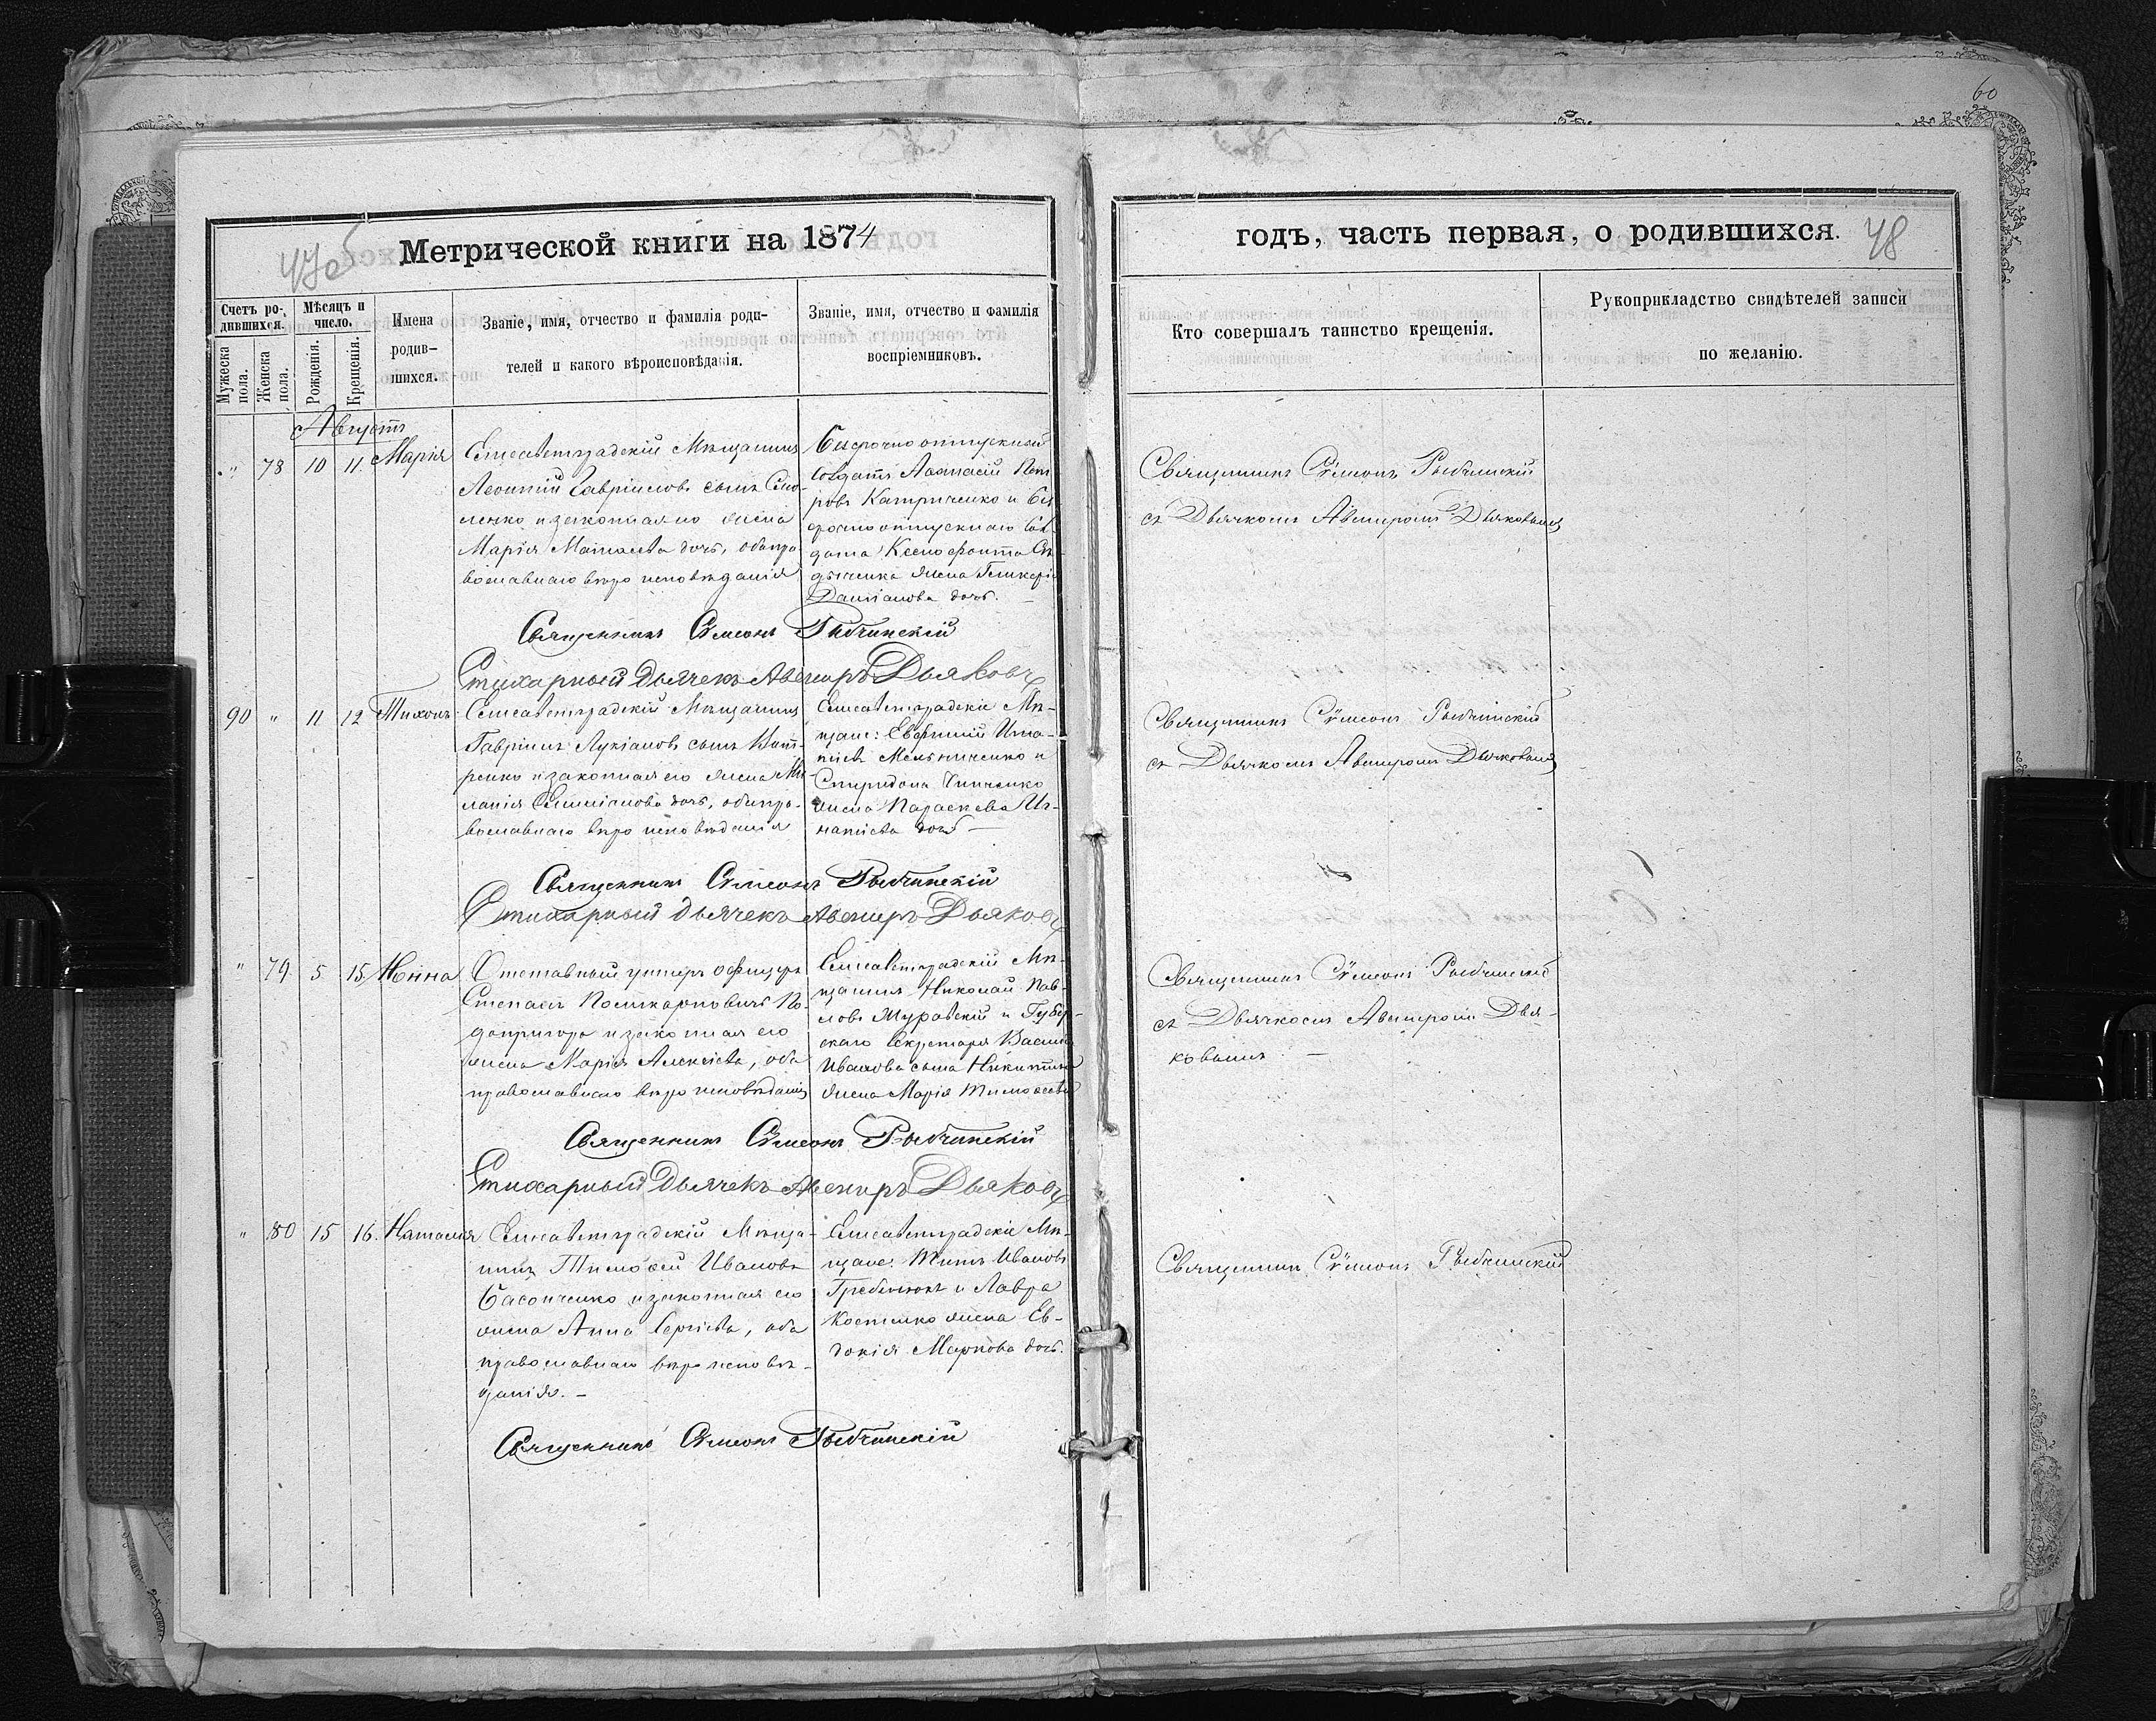 60
47об
Метрической книги на 1874
годъ, часть первая, о родившихся.
48
Счетъ родившихся.
Мѣсяцъ и число.
Имена родившихся.
Званіе, имя, отчество и фамилія родителей и какого вѣроисповѣданія.
Званіе, имя, отчество и фамилія воспріемниковъ.
Мужеска пола.
Женска пола.
Рожденія.
Крещенія.
Кто совершалъ таинство крещенія.
Рукоприкладство свидѣтелей записи
по желанію.
Августъ
" 78 10 11 Марія
Елисаветградскій Мѣщанинъ
Леонтій Гавріиловъ сынъ
и законная его жена
Марія Матѳеева дочь, оба пра-
вославнаго вѣроисповѣданія
Безсрочноотпускный
Солдатъ Аѳанасій Пет-
ровъ Катриченко и Без-
срочноотпускнаго Сол-
дата Ксенофонта
жена Гликерія
Даміанова дочь. —
Священникъ Сѵмеонъ Рыбчинскій
съ Дьячкомъ Авениромъ Дьяковымъ
Священникъ Сѵмеонъ Рыбчинскій
Стихарный дьячекъ Авениръ Дьяковъ
90 " 11 12 Тихонъ
Елисаветградскій Мѣщанинъ
Гавріилъ Лукіановъ сынъ
и законная его жена Ме-
ланія дочь, оба пра-
вославнаго вѣроисповѣданія
Елисаветградскіе Мѣ-
щане: Евѳимій Игна-
тіевъ Мельниченко и
Спиридона
жена Параскева Иг-
натіева дочь —
Священникъ Сѵмеонъ Рыбчинскій
съ Дьячкомъ Авениромъ Дьяковымъ
Священникъ Сѵмеонъ Рыбчинскій
Стихарный дьячекъ Авениръ Дьяковъ
" 79 5 15 Нонна
Отставный унтеръ офицеръ
Степанъ Поликарповичъ По-
допригора и законная его
жена Марія Алексіева, оба
православнаго вѣроисповѣданія
Елисаветградскій Мѣ-
щанинъ Николай Пав-
ловъ Муравскій и Губер-
скаго Секретаря Василія
Иванова сына Никитина
жена Марія Тимоѳеева
Священникъ Сѵмеонъ Рыбчинскій
съ Дьячкомъ Авениромъ Дья-
ковымъ. —
Священникъ Сѵмеонъ Рыбчинскій
Стихарный Дьячекъ Авениръ Дьяковъ
" 80 15 16. Наталія
Елисаветградскій Мѣща-
нинъ Тимоѳей Ивановъ
и законная его
жена Анна Сергіева, оба
православнаго вѣроисповѣ-
данія. —
Елисаветградскіе Мѣ-
щане: Титъ Ивановъ
Гребенюкъ и Лавра
Костенко жена Ев-
докія Маркова дочь.
Священникъ Сѵмеонъ Рыбчинскій
Священникъ Сѵмеонъ Рыбчинскій